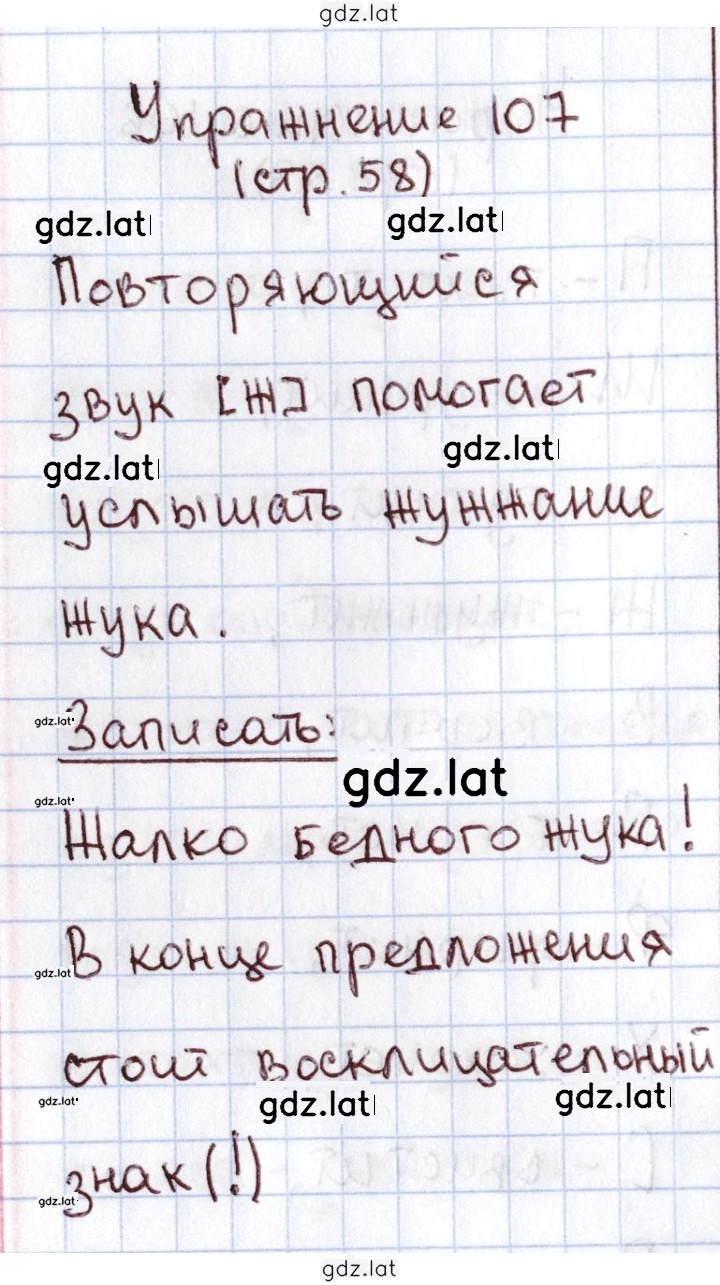 gdz.lat
Упражнение 107
(стр. 58)
gdz.lat gdz.lat
Повторяющийся
звук [Ж] помогает
gdz.lat gdz.lat
услышать жужжание
жука.
gdz.lat
Записать:
gdz.lat
gdz.lat
Жалко бедного жука!
В конце предложения
gdz.lat
стоит восклицательный
gdz.lat gdz.lat gdz.lat
знак (!)
gdz.lat
gdz.lat